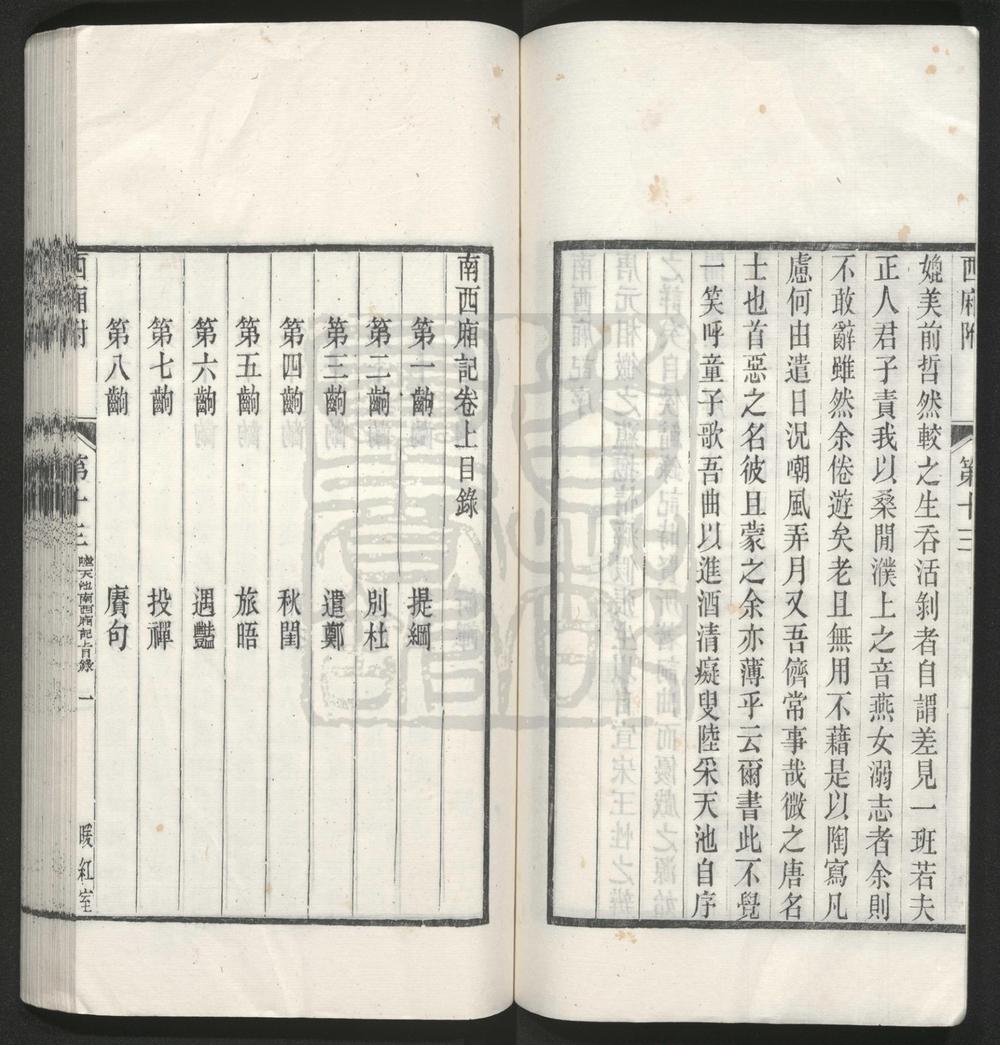 西廂附
第十三
媲美前哲然較之生吞活剝者自謂差見一班若夫
正人君子責我以桑閒濮上之音燕女溺志者余則
不敢辭雖然余倦遊矣老且無用不藉是以陶寫凡
慮何由遣日況嘲風弄月又吾儕常事哉微之唐名
士也首惡之名彼且蒙之余亦薄乎云爾書此不覺
一笑呼童子歌吾曲以進酒清癡叟陸采天池自序
南西廂記卷上目錄
第一齣 提綱
第二齣 別杜
第三齣 遣鄭
第四齣 秋閨
第五齣 旅晤
第六齣 遇豔
第七齣 投禪
第八齣 賡句
西廂附
第十三
陸天池南西廂記上目錄
一
暖紅室